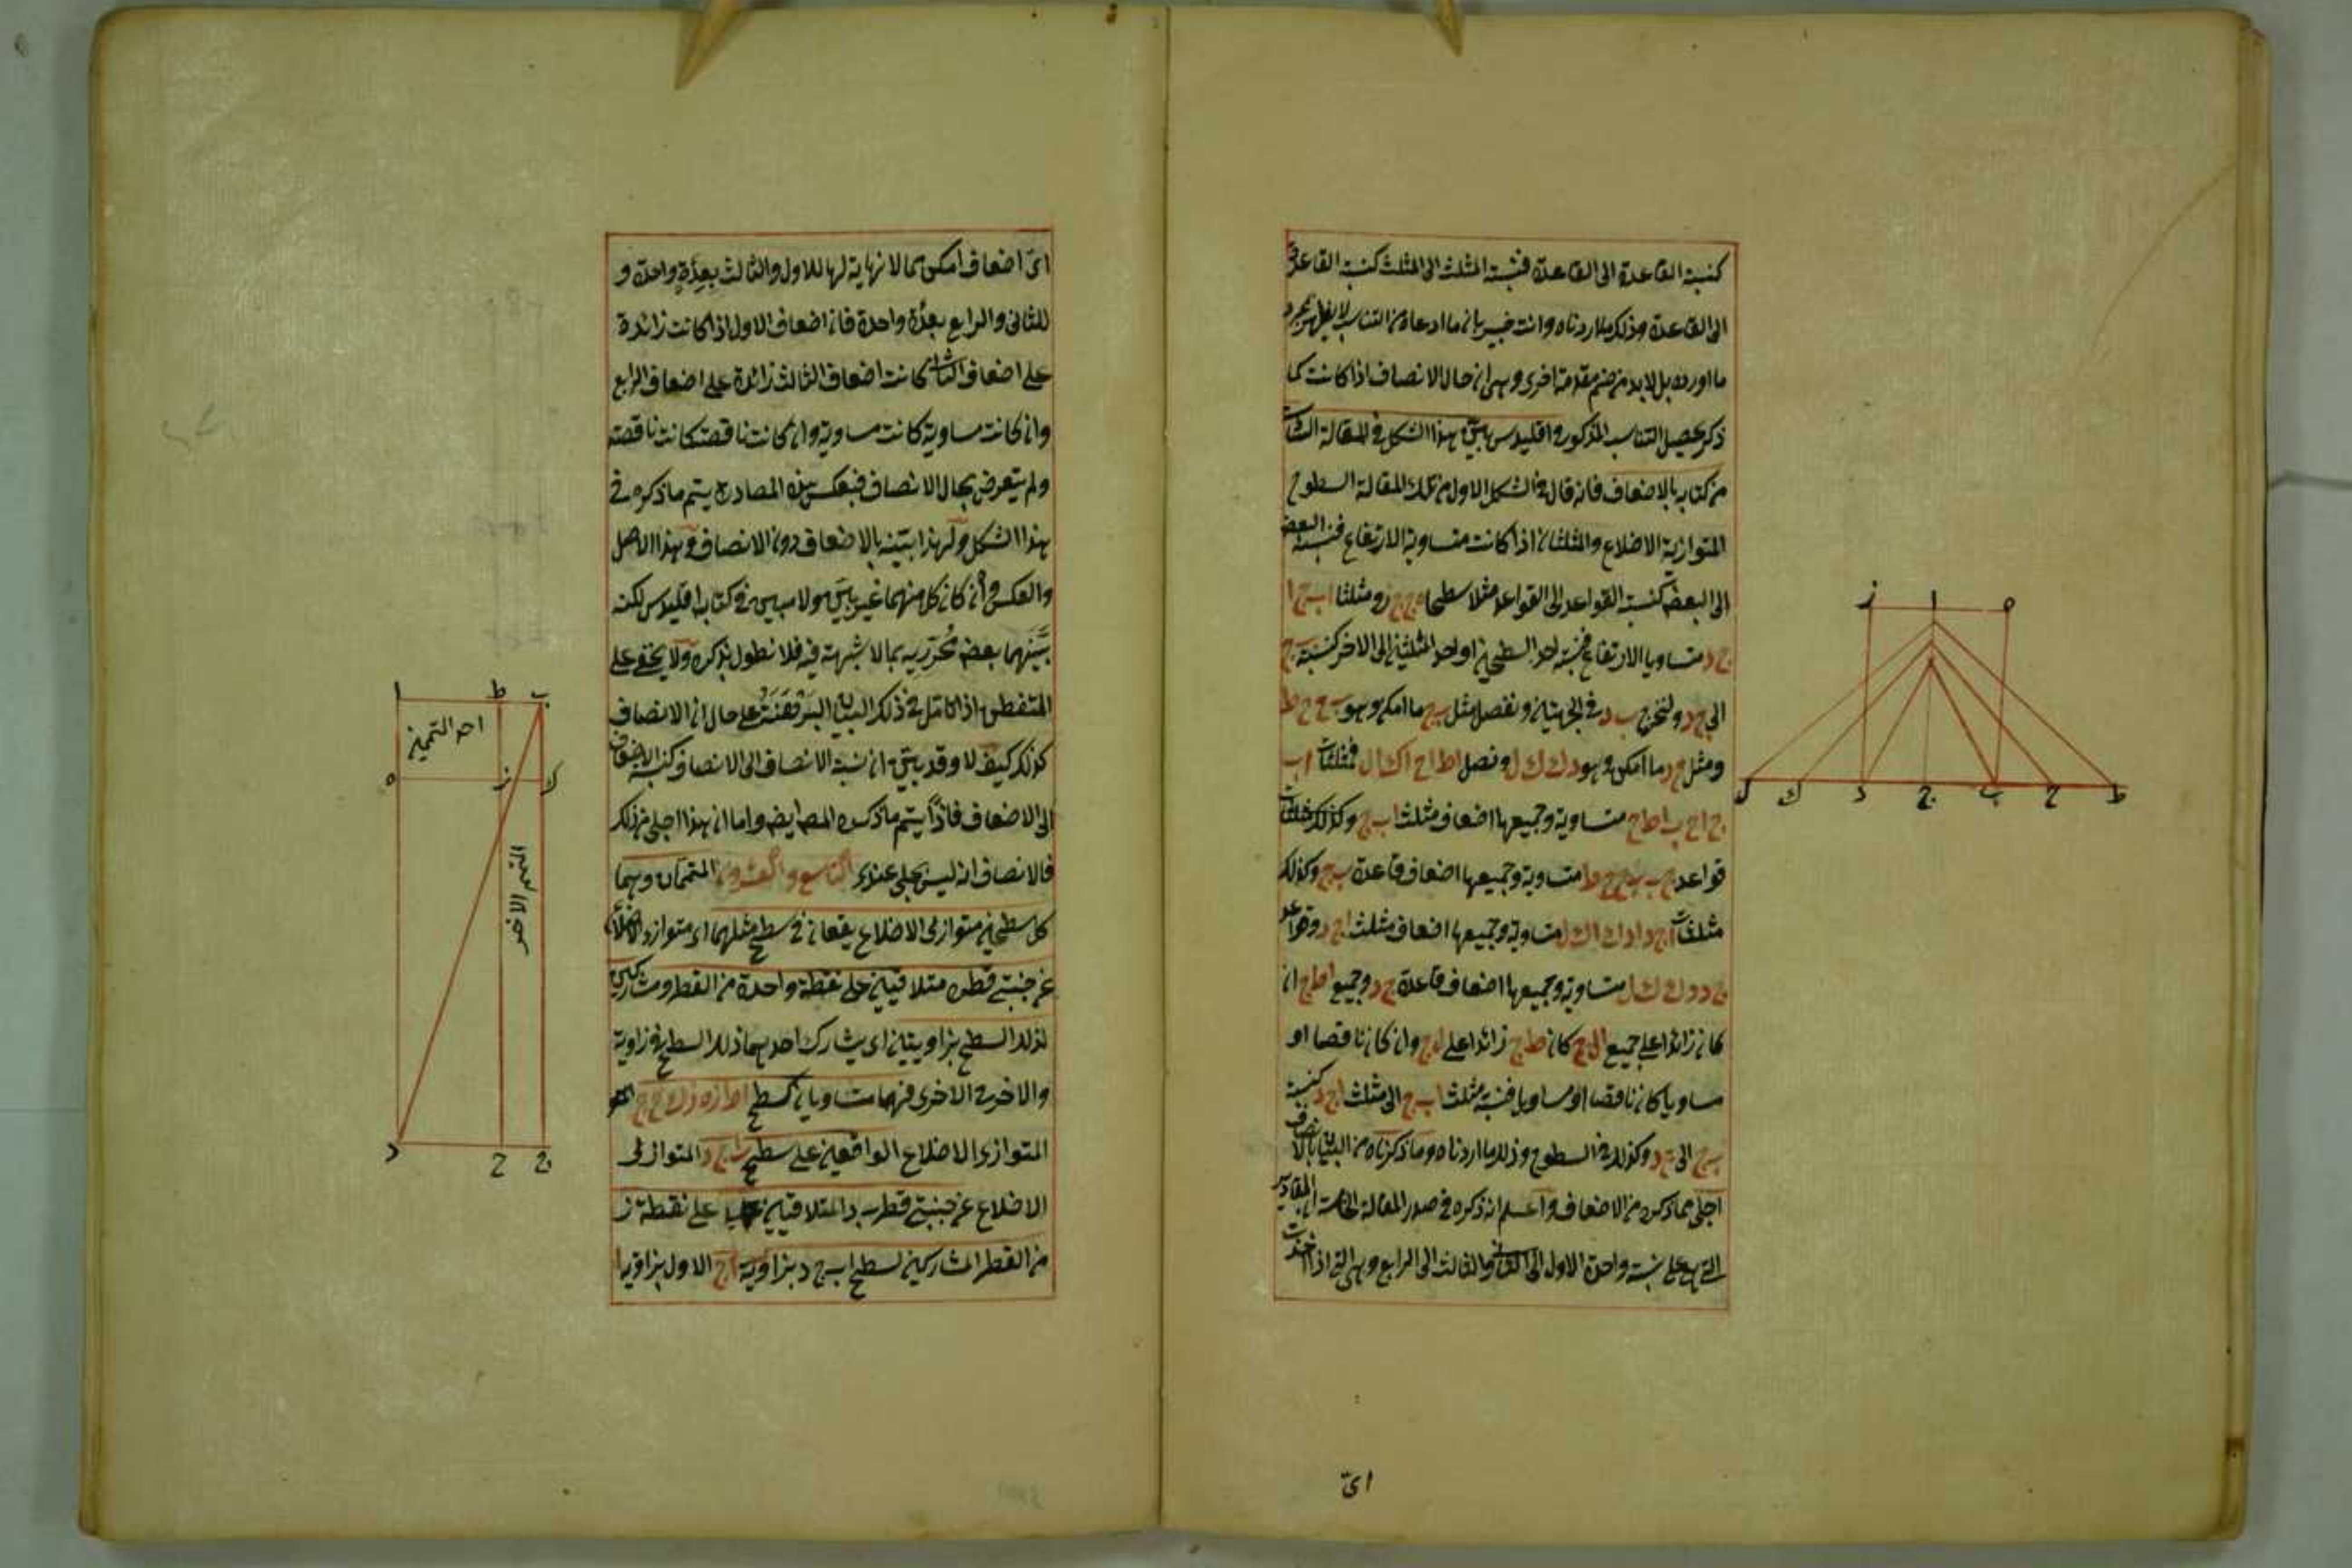 كنسبة القاعدة الى القاعدة فنسبة المثلث الى المثلث كنسبة القاعدة
الى القاعدة وذلك ما اردناه وانت خبير بان ما ادعاه من التناسب لا يظهر بمجرد
ما اورده بل لا بد من ضم مقدمة اخرى وهى ان حال الانصاف اذا كانت كما
ذكر يحصل التناسب المذكور واقليدس بيّن هذا الشكل فى المقالة السادسة
من كتابه بالاضعاف فانه قال فى الشكل الاول من تلك المقالة السطوح
المتوازية الاضلاع والمثلثات اذا كانت متساوية الارتفاع فنسبة البعض
الى البعض كنسبة القواعد الى القواعد مثلا سطحا ومثلثا ا ب ج ا
ج د متساويا الارتفاع فنسبة احد السطحين او احد المثلثين الى الاخر كنسبة ب ج
الى ج د ولنخرج ب د فى الجهتين ونفصل مثل ب ج ما امكن وهو ب ح ح ط
ومثل ج د ما امكن وهو د ك ك ل ونصل ا ط ا ح ا ك ا ل فمثلثات ا ب
ج ا ح ب ا ط ح متساوية وجميعها اضعاف مثلث ا ب ج وكذلك
قواعد ج ب ب ح ح ط متساوية وجميعها اضعاف قاعدة ب ج وكذلك
مثلثات ا ج د ا د ك ا ك ل متساوية وجميعها اضعاف مثلث ا ج د وقواعد
ج د د ك ك ل متساوية وجميعها اضعاف قاعدة ج د وجميع ا ط ج ان
كان زائدا على جميع ا ل ج كان ط ج زائدا على ل ج وان كان ناقصا او
مساويا كان ناقصا او مساويا فنسبة مثلث ا ب ج الى مثلث ا ج د كنسبة
ب ج الى ج د وكذلك فى السطوح وذلك ما اردناه وما ذكرناه من البيان بالانصاف
اجلى مما ذكره من الاضعاف واعلم انه ذكره فى صدر المقالة الخامسة ان المقادير
التى هى على نسبة واحدة الاول الى الثانى والثالث الى الرابع وهى التى اذا اخذت
اىّ
اىّ اضعاف امكن مما لا نهاية لها للاول والثالث بعدّة واحدة و
للثانى والرابع بعدّة واحدة فان اضعاف الاول اذا كانت زائدة
على اضعاف الثانى كانت اضعاف الثالث زائدة على اضعاف الرابع
وان كانت مساوية كانت مساوية وان كانت ناقصة كانت ناقصة
ولم يتعرض بحال الانصاف فبعكس هذه المصادرة يتم ما ذكره فى
هذا الشكل ولهذا بيّنه بالاضعاف دون الانصاف وهذا الاصل
والعكس وان كان كل منهما غير بيّن ولا مبين فى كتاب اقليدس لكنه
بيّنهما بعض محرّريه بما لا شبهة فيه فلا نطول بذكره ولا يخفى على
المتفطن اذا تامل فى ذلك البيان على حال ان الانصاف
كذلك كيف لا وقد بيّن ان نسبة الانصاف الى الانصاف كنسبة الاضعاف
الى الاضعاف فاذاً يتم ما ذكره المص ايضه واما ان هذا اجلى من ذلك
فالانصاف انه ليس بجلى عندى التاسع والعشرون المتممان وهما
كل سطحين متوازى الاضلاع يقعان فى سطح مثلهما اى متوازى الاضلاع
عن جنبتى قطره متلاقيين على نقطة واحدة من القطر ومشاركين
لذلك السطح بزاويتين اى يشارك احدهما ذلك السطح فى زاوية
والاخر فى الاخرى فهما متساويان كسطحى ا ط ز ه ز ك ج ح
المتوازى الاضلاع الواقعين على سطح ا ب ج د المتوازى
الاضلاع عن جنبتى قطر ب د المتلاقيين على نقطة ز
من القطر المشاركين لسطح ا ب ج د بزاويتى ا ج الاول بزاوية ا
ز ا ه
ل ك د ج ب ح ط
ا ط ب
احد المتممين
ه ز ك
المتمم الاخر
د ح ج